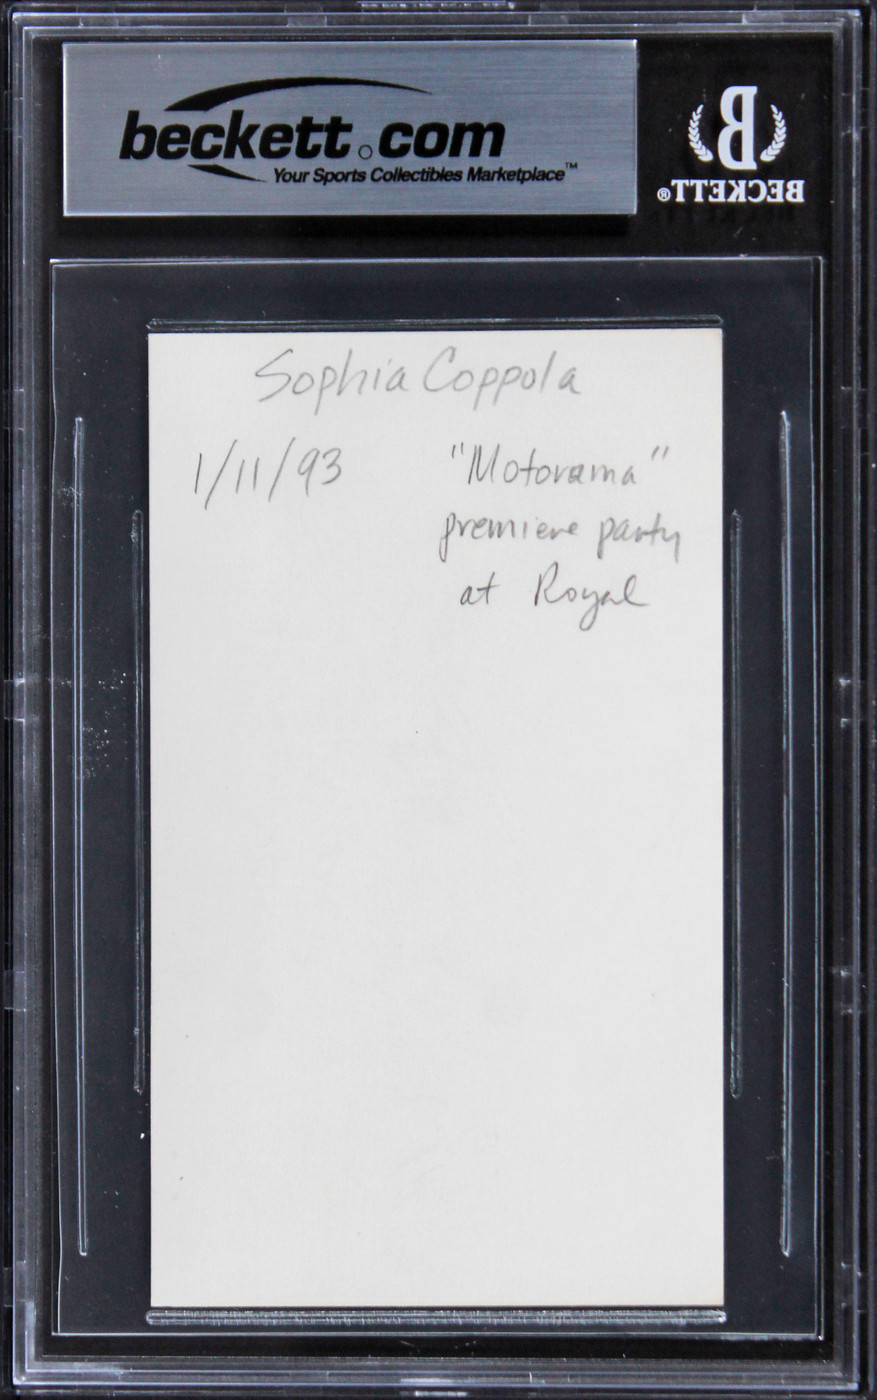 beckett.com
Your Sports Collectibles Marketplace™
B
BECKETT®
Sophia Coppola
1/11/93
"Motorama"
premiere party
at Royal